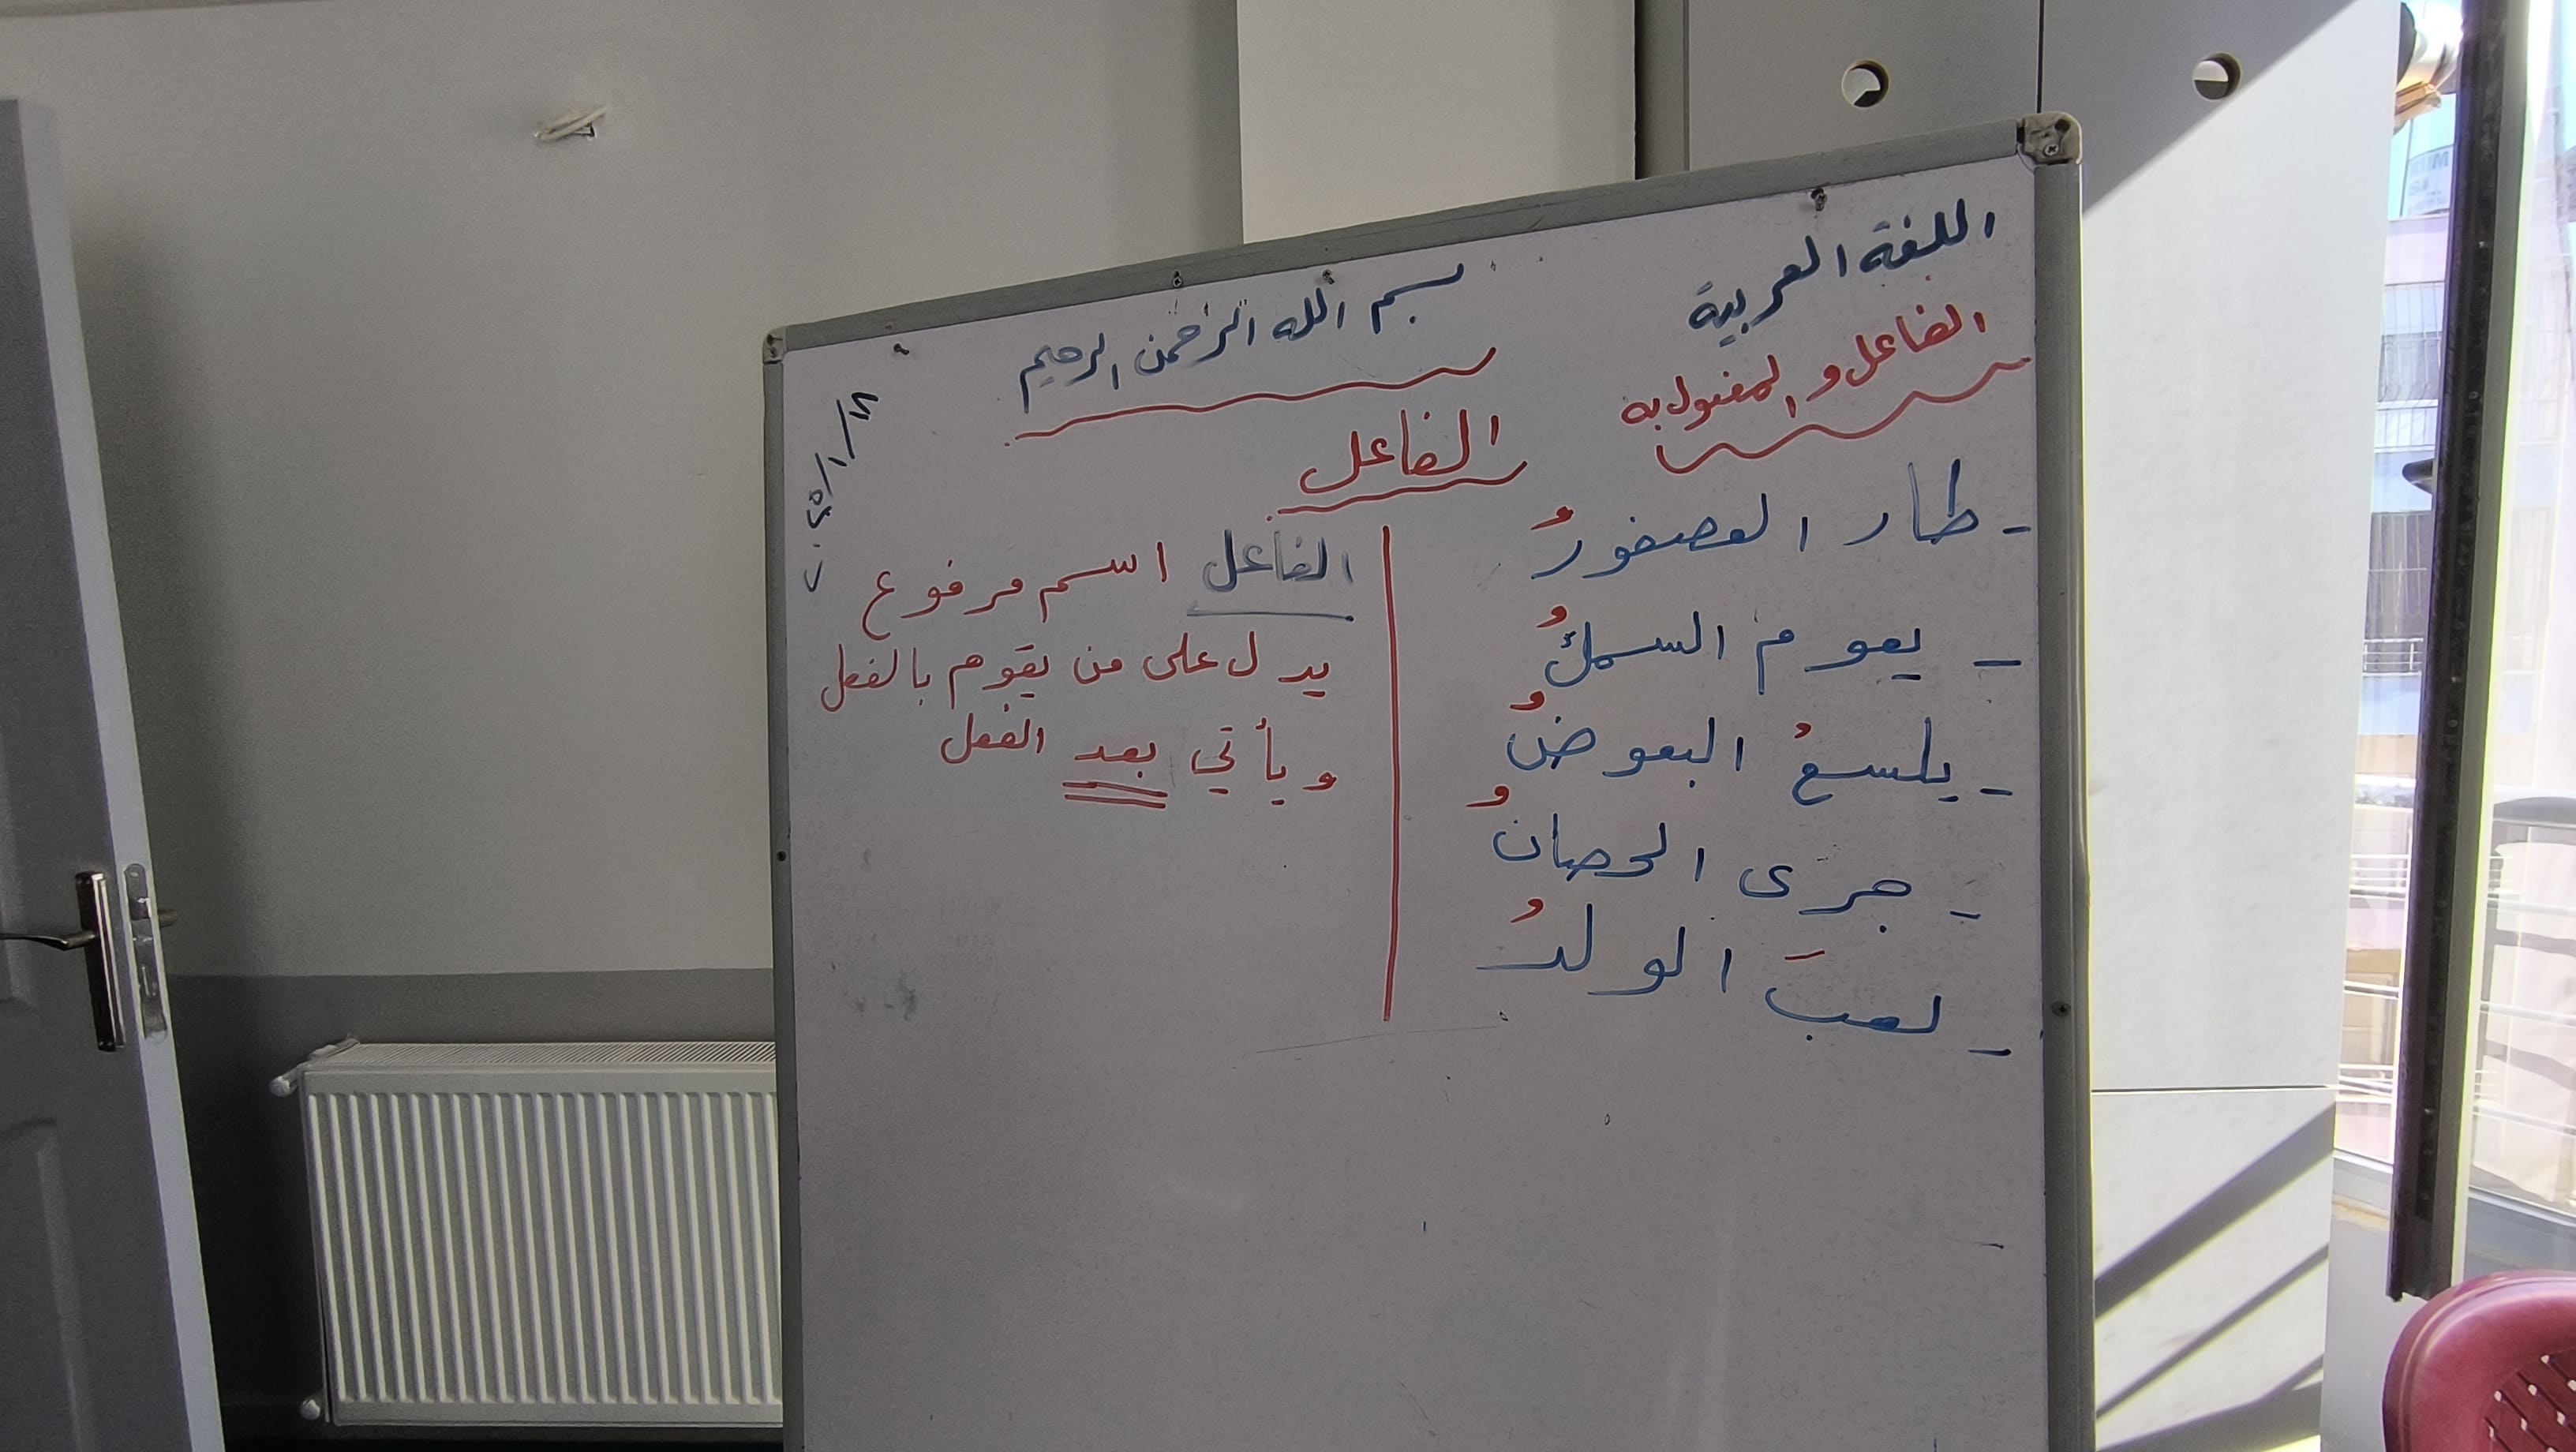 اللغة العربية
الفاعل و المفعول به
بسم الله الرحمن الرحيم
٢٠٢٥/١/١٨
الفاعل
- طار العصفورُ
- يعوم السمكُ
- يلسعُ البعوضُ
- جرى الحصانُ
- لعبَ الولدُ
الفاعل اسم مرفوع
يدل على من يقوم بالفعل
و يأتي بعد الفعل